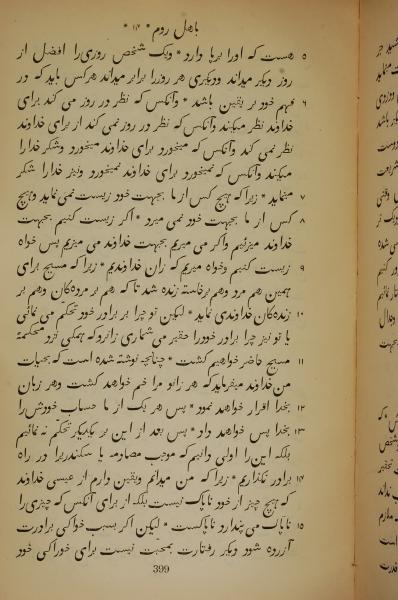 باهل روم * ۱۴ *
۵ هست که اورا برپا دارد * ویک شخص روزی‌را افضل از
روز دیگر میداند ودیگری هر روزرا برابر میداند هرکس باید که در
۶ فهم خود بر یقین باشد * وآنکس که نظر در روز می کند برای
خداوند نظر میکند وآنکس که نظر در روز نمی کند از برای خداوند
نظر نمی کند وآنکس که میخورد برای خداوند میخورد وشکر خدارا
میکند وآنکس که نمیخورد برای خداوند نمیخورد ونیز خدارا شکر
۷ مینماید * زیرا که هیچ کس از ما بجهت خود زیست نمی نماید وهیچ
۸ کس از ما بجهت خود نمی میرد * اکر زیست کنیم بجهت
خداوند میزئیم واکر می میریم بجهت خداوند می میریم پس خواه
۹ زیست کنیم وخواه میریم که زان خداوندیم * زیرا که مسیح برای
همین هم مرد وهم برخاسته زنده شد تا که هم بر مردەکان وهم بر
۱۰ زندەکان خداوندی نماید * لیکن تو چرا بر برادر خود تحکم می نمائی
یا تو نیز چرا برادر خودرا حقیر می‌شماری زانرو که همکی نزد محکمهٔ
۱۱ مسیح حاضر خواهیم کشت * چنانچه نوشته شده است که بحیات
من خداوند میفرماید که هر زانو مرا خم خواهد کشت وهر زبان
۱۲ بخدا اقرار خواهد نمود * پس هر یک از ما حساب خودش‌را
۱۳ بخدا پس خواهد داد * پس بعد از این بر یکدیکر تحکم نه نمائیم
بلکه این‌را اولی دانیم که موجب مصادمه یا سکندر برا در راه
۱۴ برادر نکذاریم * زیرا که من میدانم ویقین دارم از عیسی خداوند
که هیچ چیز از خود ناپاک نیست بلکه از برای آنکس که چیزی‌را
۱۵ ناپاک می پندارد ناپاکست * لیکن اکر بسبب خوراکی برادرت
آزرده شود دیکر رفتارت بمحبت نیست برای خوراکی خود
399